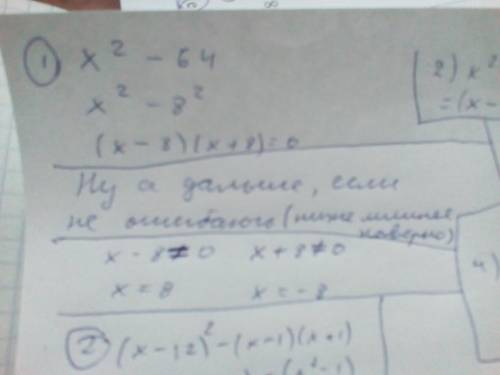 1 x² - 64
x² - 8²
(x - 8)(x + 8) = 0
Ну а дальше, если
не ошибаюсь (ниже лишнее
наверно)
x - 8 ≠ 0 x + 8 ≠ 0
x = 8 x = -8
2 (x - 12)² - (x - 1)(x + 1)
- (x² - 1)
2) x²
= (x -
4)